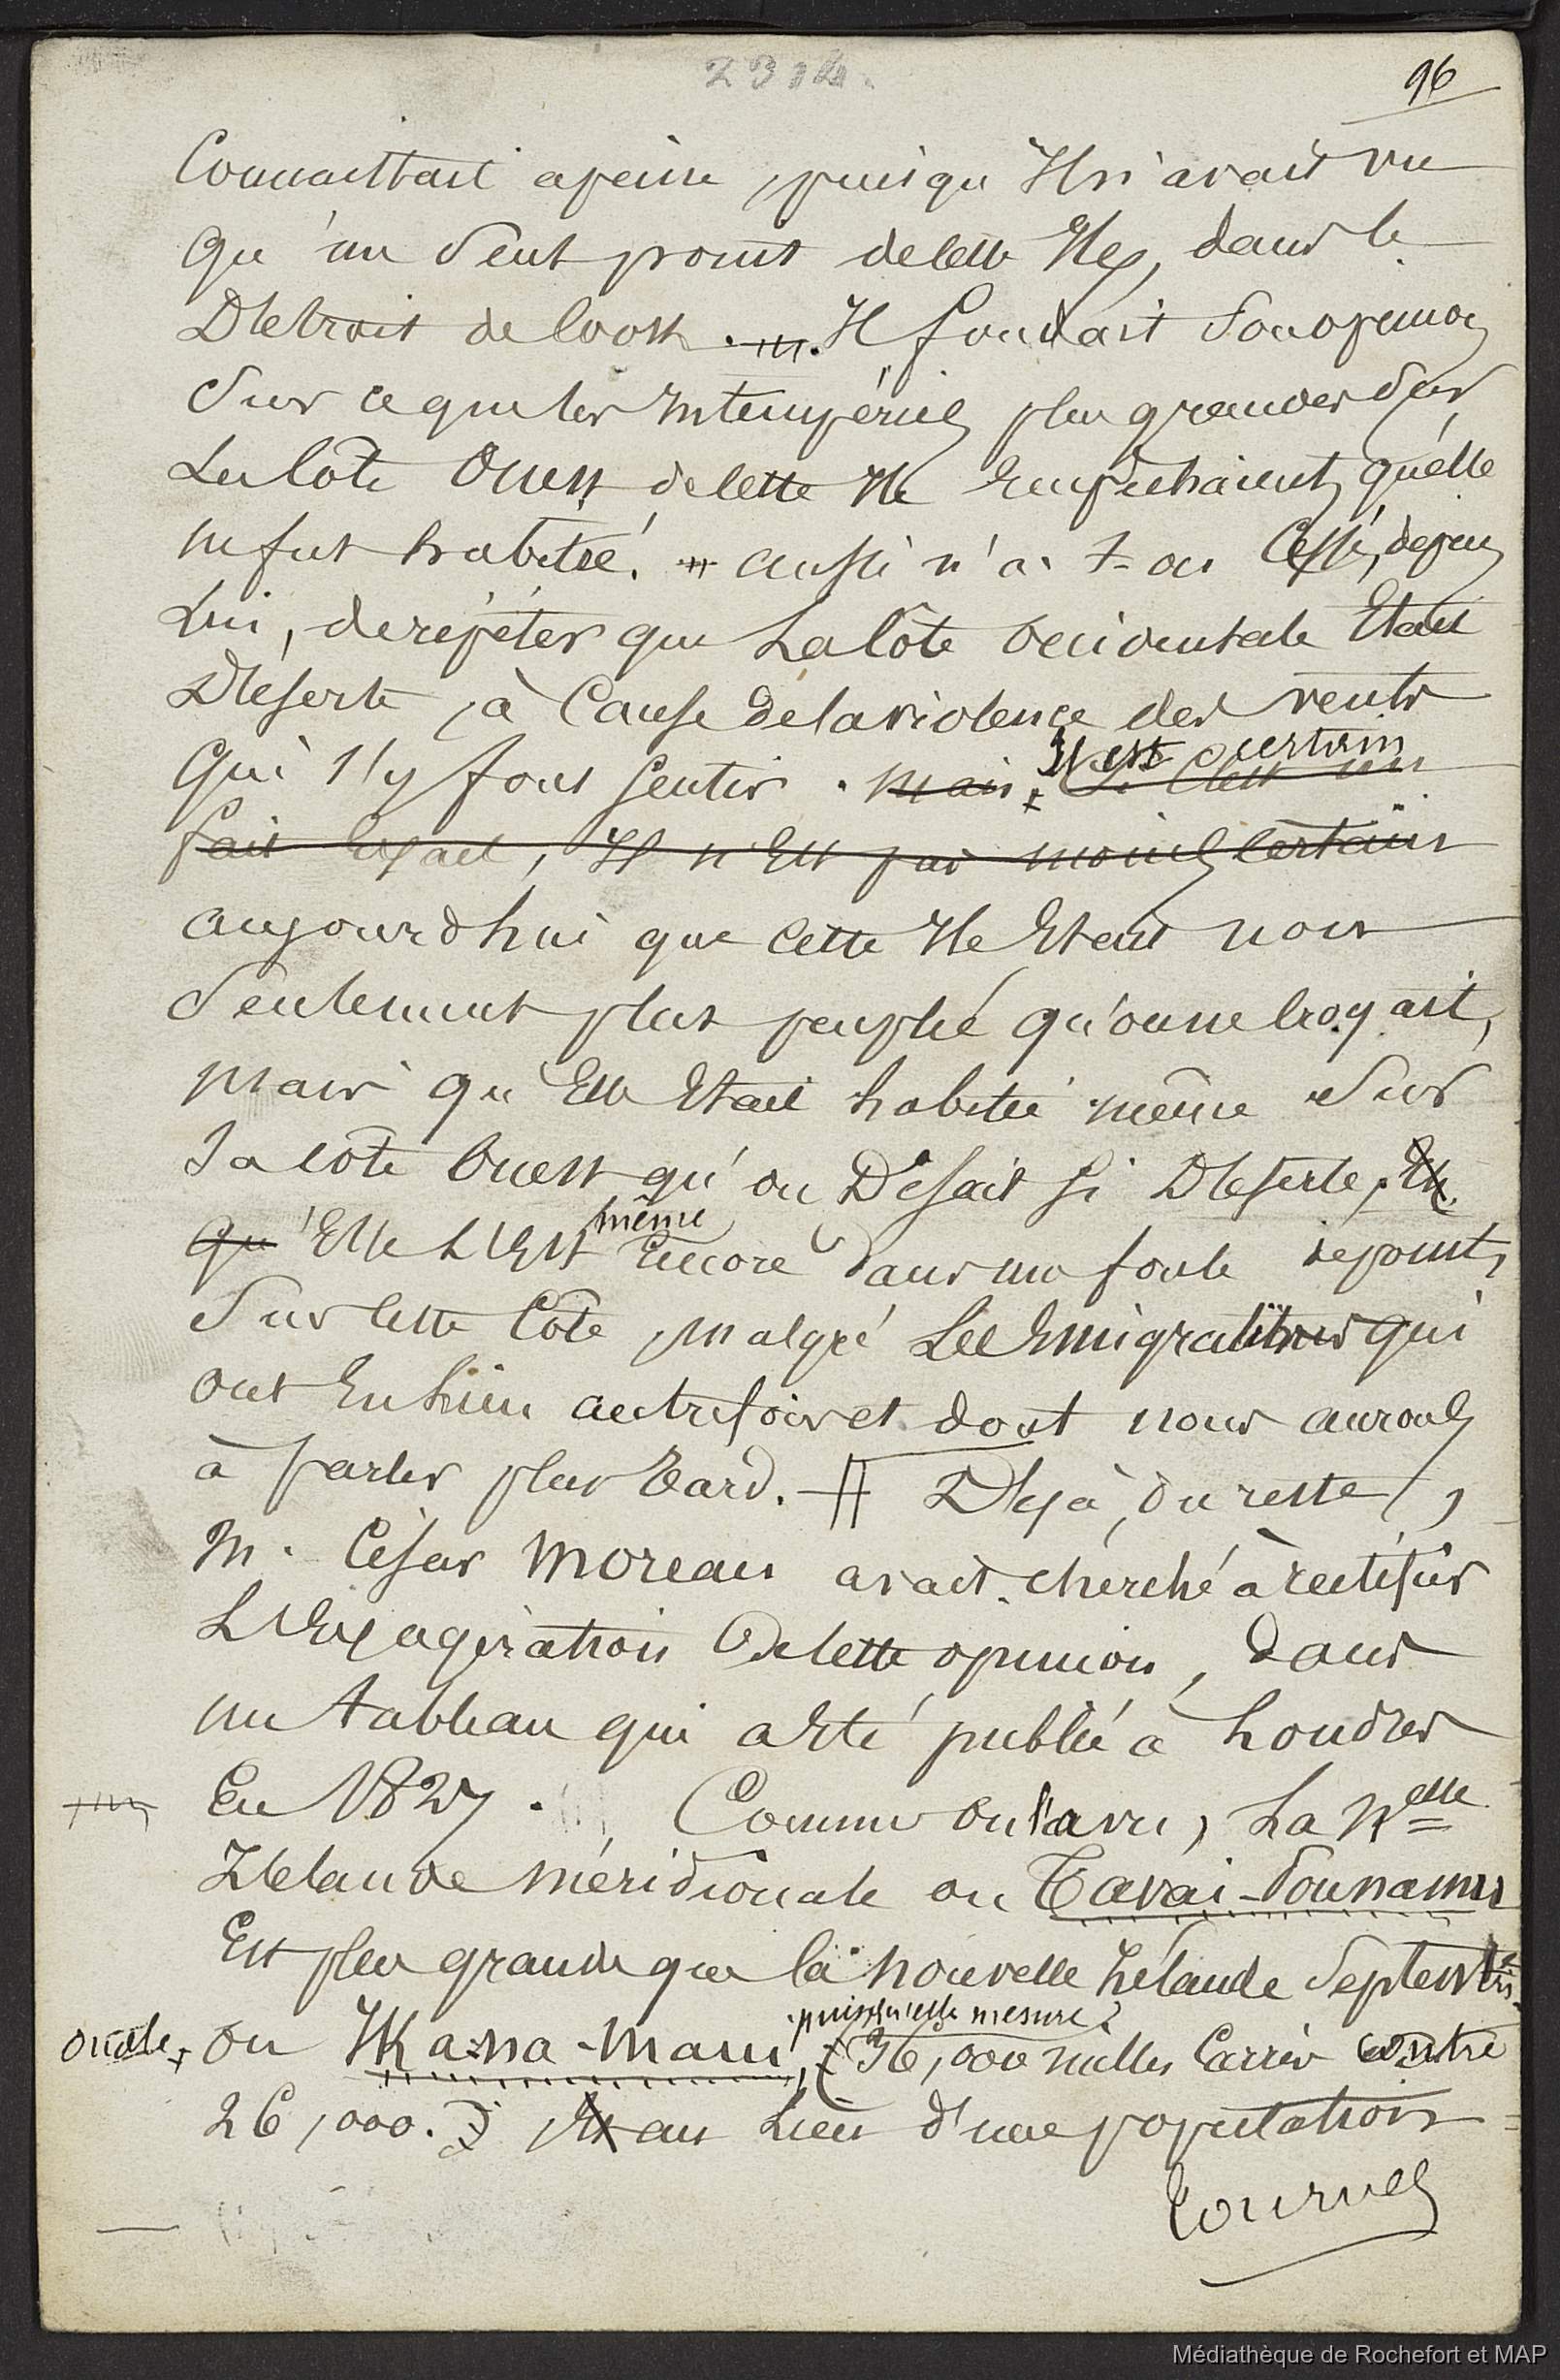 2314.
96
Connaittait apeine, puisqu Il n'avait vu
qu'un seul point de cette Ile, dans le
Détroit de Cook. Il fondait son opinion
sur ce que les Intempéries plus grandes sur
La Côte Ouest de cette Ile Empêchaient qu'elle
ne fut habitée. aussi n'a-t-on Cessé, depuis
Lui, de répéter que La Côte Occidentale Etait
Déserte, à Cause de la violence des vents
Il est certain
qui s'y font sentir. mais si C'est un
fait Exact, Il n'Est pas moins Certain
aujourd'hui que cette Ile Etait non
seulement plus peuplé qu'on ne croyait,
mais qu'Elle Etait habitée même sur
sa côte Ouest qu'on Disait si Déserte, Et
même
qu'Elle L'Est Encore dans une foule de points
sur cette Côte, malgré Les Emigrations qui
ont Eu lieu autrefois et dont nous aurons
à parler plus tard. # Déjà, du reste,
M. César Moreau avait cherché à rectifier
L'Exagération de cette opinion, dans
un tableau qui a Eté publié à Londres
En 1827. Comme on l'a vu, La Nelle
Zélande méridionale ou Tavaï-Pounamu
Est plus grande que la nouvelle Zélande Septentri-
puisqu'elle mesure
onale ou IKa-na-Mawi, (36,000 milles Carrés contre
26,000.) Et au Lieu d'une population
Tournez
Médiathèque de Rochefort et MAP